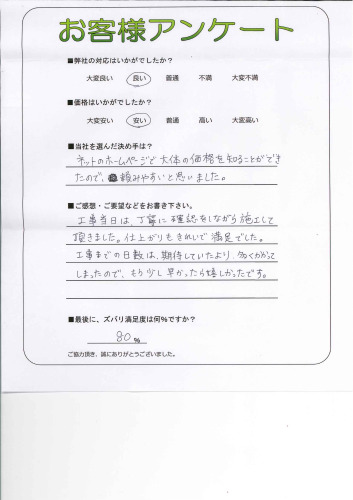 お客様アンケート
■弊社の対応はいかがでしたか？
大変良い 良い 普通 不満 大変不満
■価格はいかがでしたか？
大変安い 安い 普通 高い 大変高い
■当社を選んだ決め手は？
ネットのホームページで大体の価格を知ることができ
たので、頼みやすいと思いました。
■ご感想・ご要望などをお書き下さい。
工事当日は、丁寧に確認をしながら施工して
頂きました。仕上がりもきれいで満足でした。
工事までの日数は、期待していたより、多くかかって
しまったので、もう少し早かったら嬉しかったです。
■最後に、ズバリ満足度は何%ですか？
80 %
ご協力頂き、誠にありがとうございました。